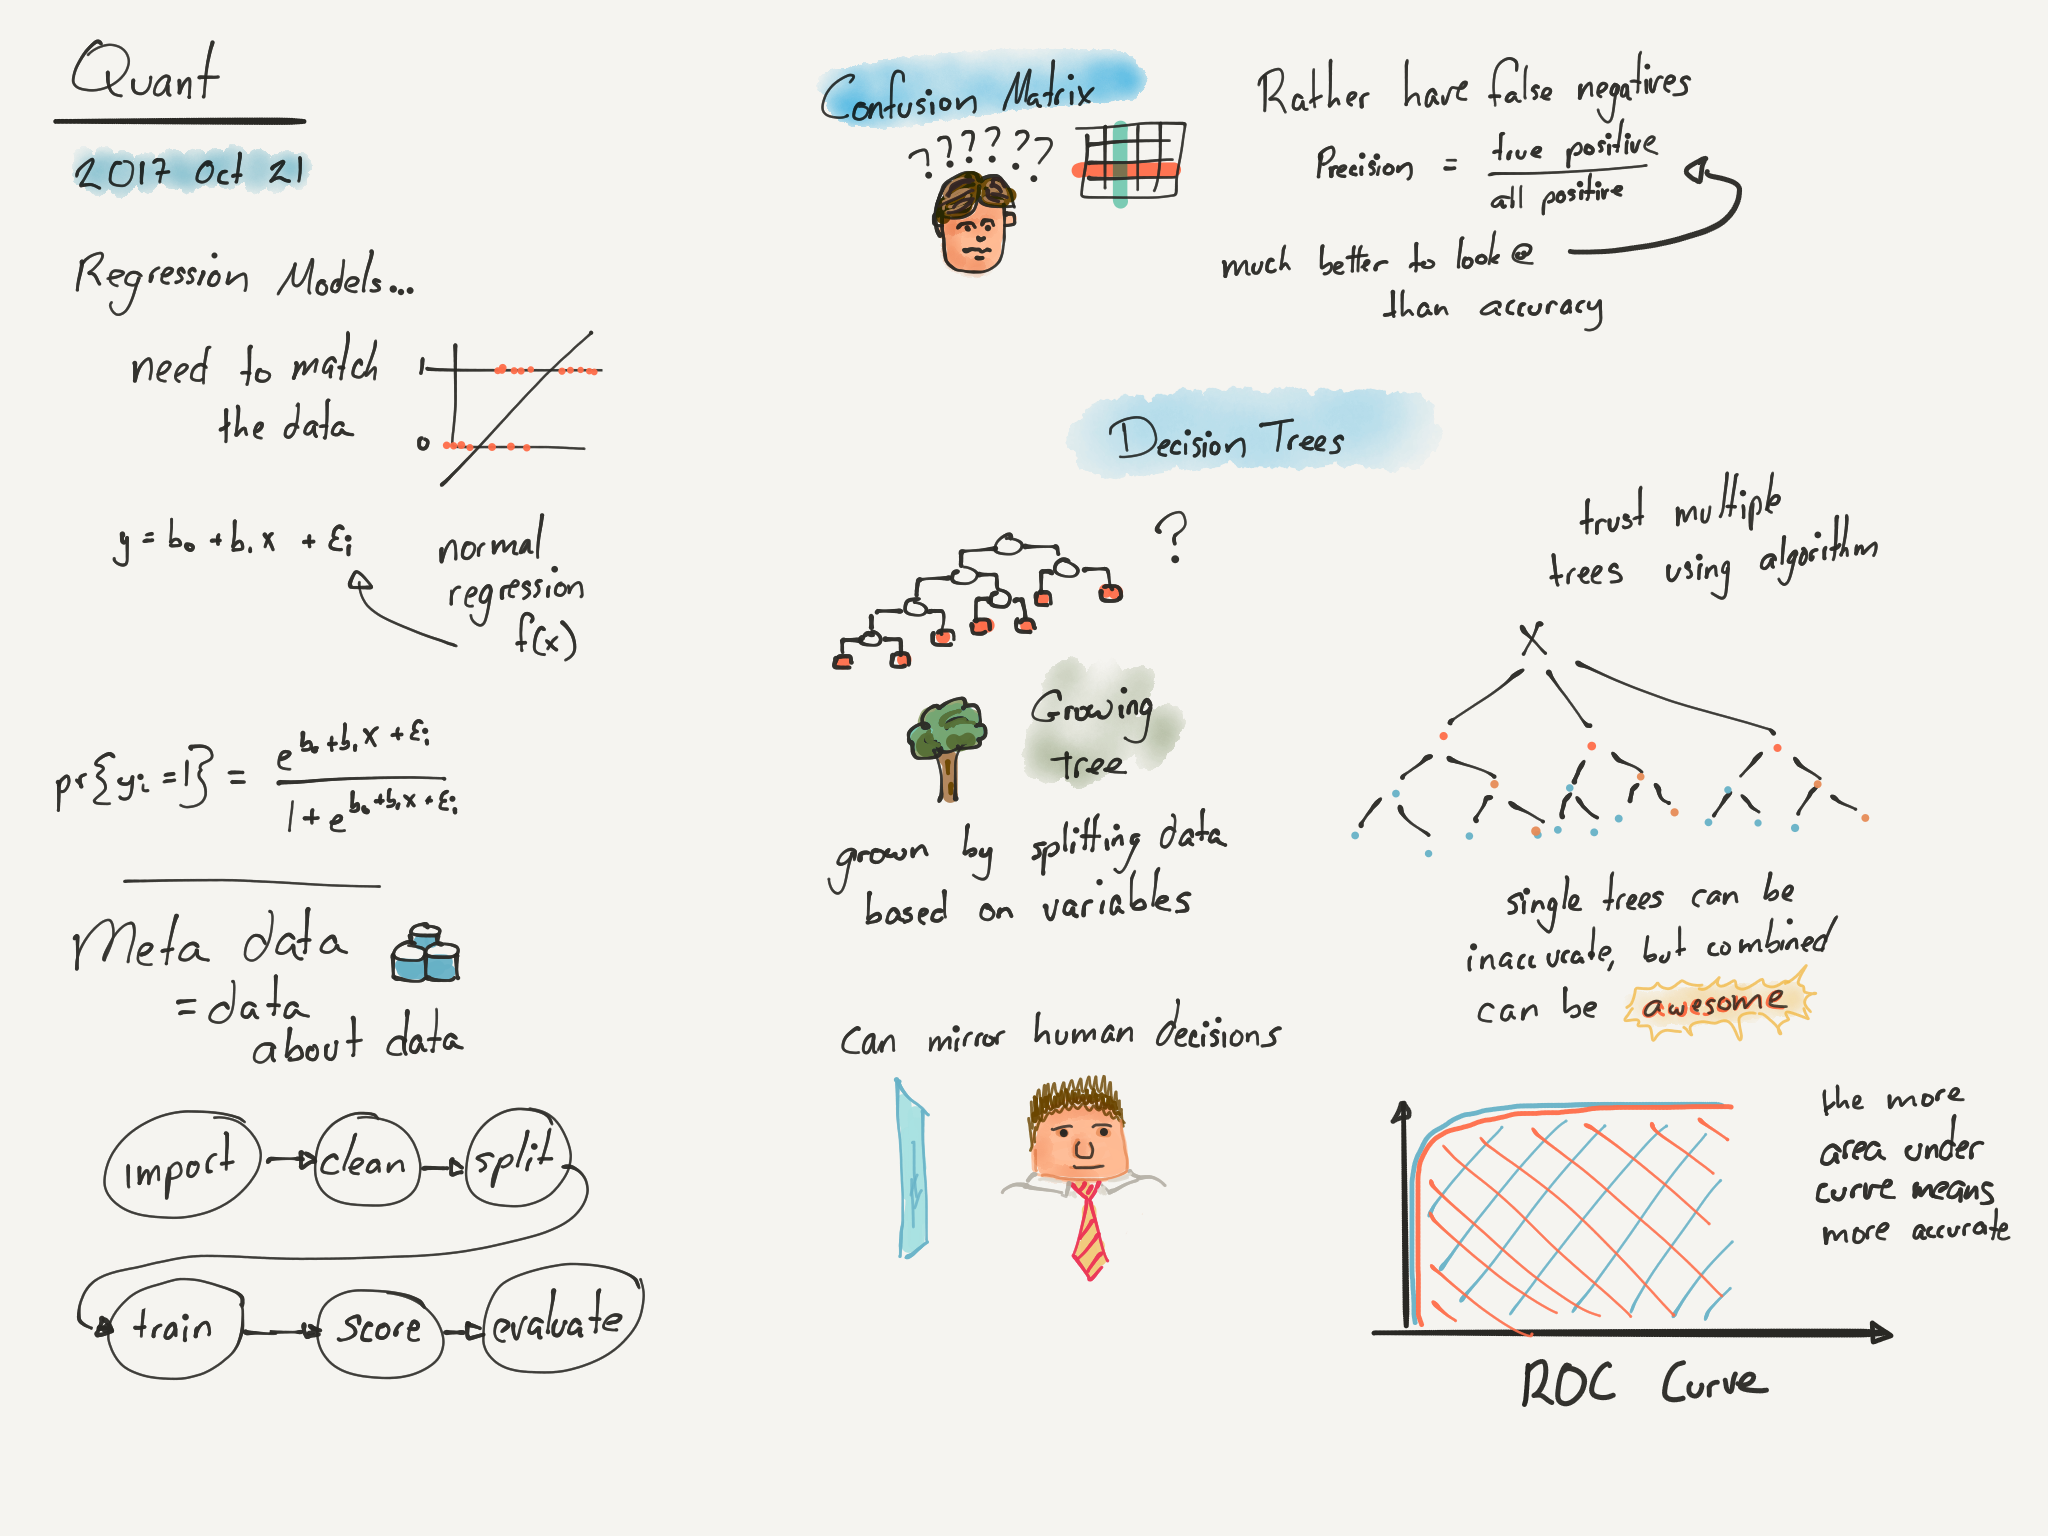 Quant
2017 Oct 21
Regression Models...
need to match
the data
1
0
y = b₀ + b₁ x + εᵢ
normal
regression
f(x)
pr{yᵢ = 1} = e^(b₀ + b₁ x + εᵢ) / 1 + e^(b₀ + b₁ x + εᵢ)
Meta data
= data
about data
import
clean
split
train
score
evaluate
Confusion Matrix
? ? ? ? ? ?
Rather have false negatives
Precision = true positive / all positive
much better to look @
than accuracy
Decision Trees
?
Growing
tree
grown by splitting data
based on variables
Can mirror human decisions
trust multiple
trees using algorithm
X
single trees can be
inaccurate, but combined
can be awesome
the more
area under
curve means
more accurate
ROC Curve